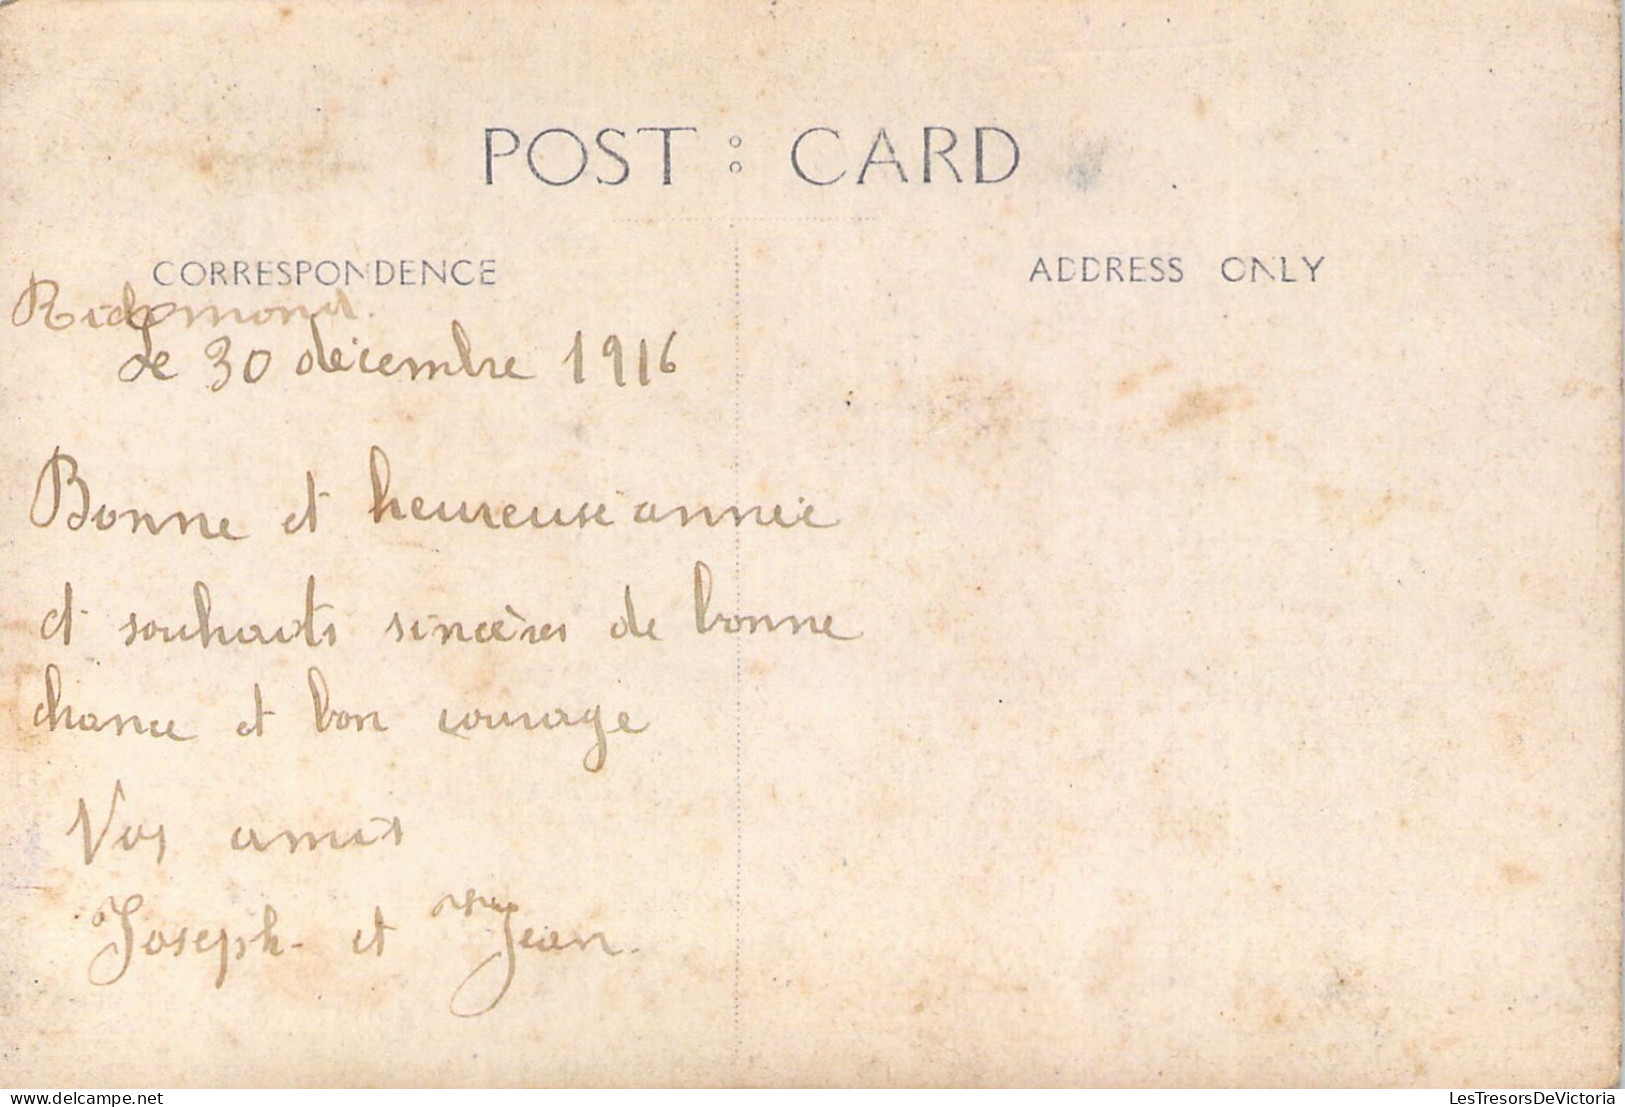 POST : CARD
CORRESPONDENCE
ADDRESS ONLY
Richmond.
Le 30 décembre 1916
Bonne et heureuse année
et souhaits sincères de bonne
chance et bon courage
Vos amis
Joseph et Jean.
delcampe.net
LesTresorsDeVictoria